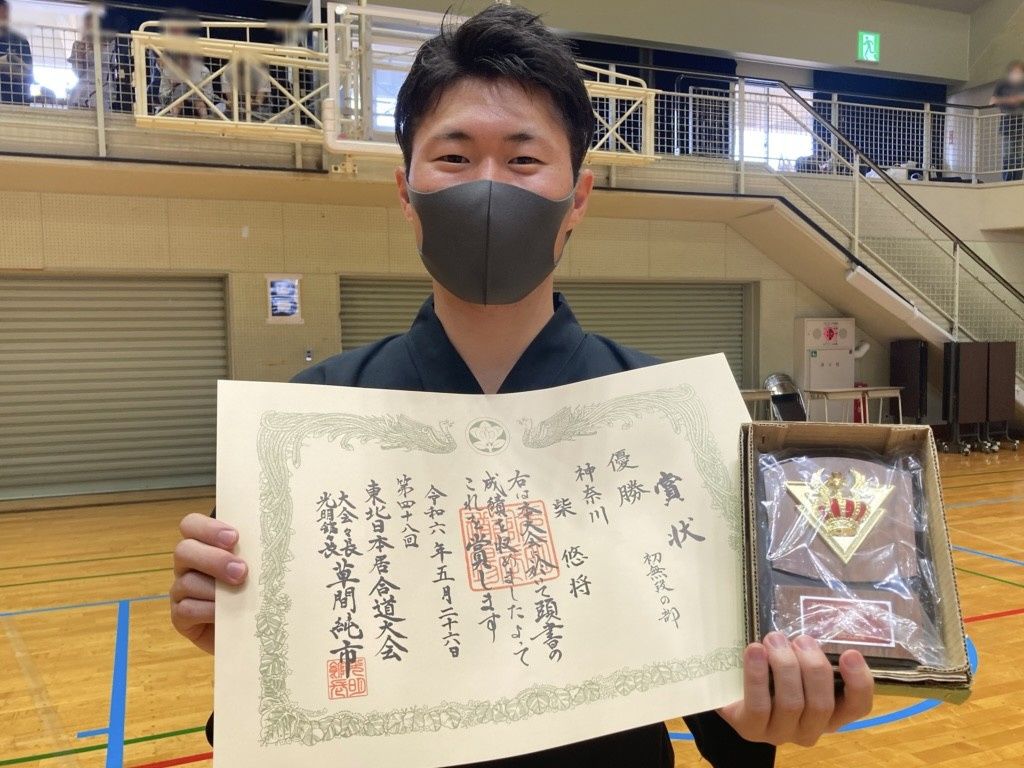 賞状
初無段の部
優勝
神奈川
柴 悠将
右は本大会に於いて頭書の
成績を収めましたよって
これを賞します
令和六年五月二十六日
第四十八回
東北日本居合道大会
大会々長
光明館々長
草間純市